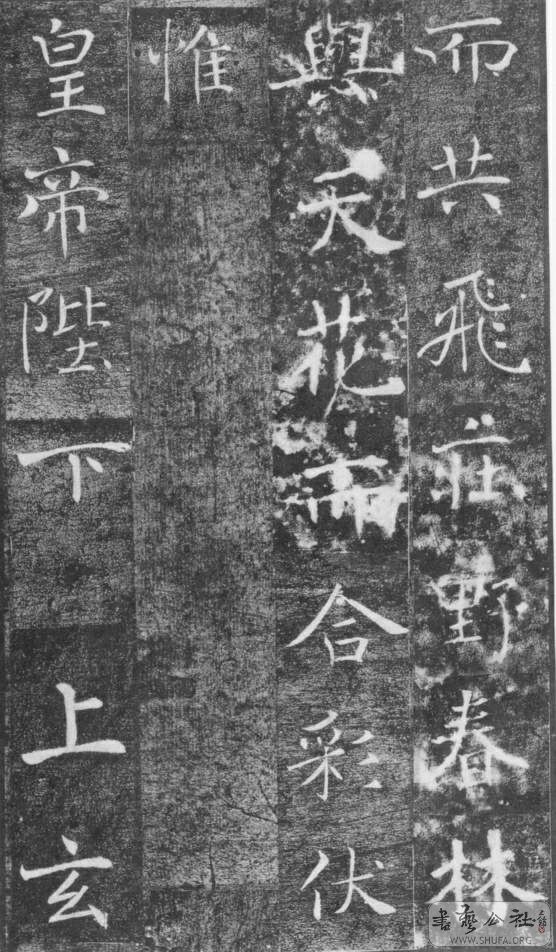 而共飛莊野春林
與天花而合彩伏
惟
皇帝陛下上玄
書藝公社
WWW.SHUFA.ORG